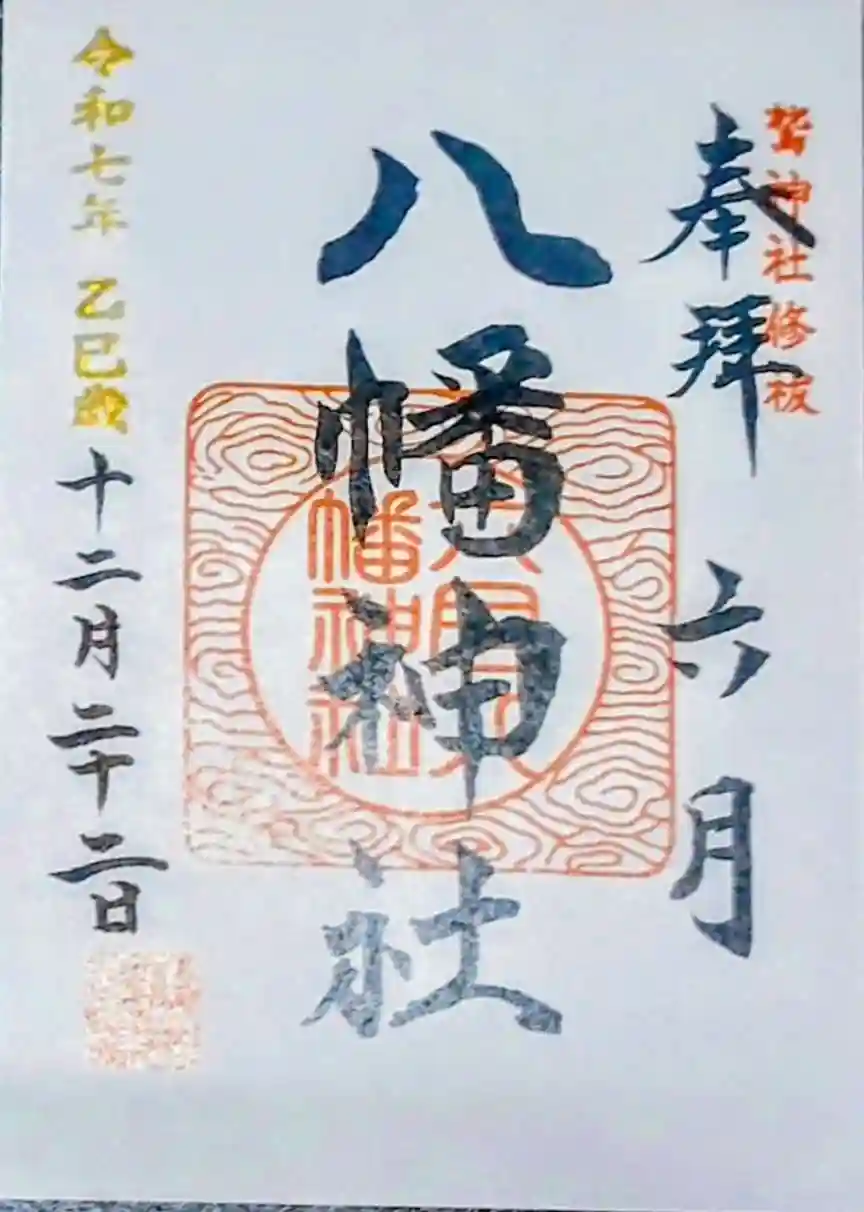 鷲神社修祓
奉拝 六月
八幡神社
六月八
幡神社
令和七年 乙巳歳 十二月二十二日